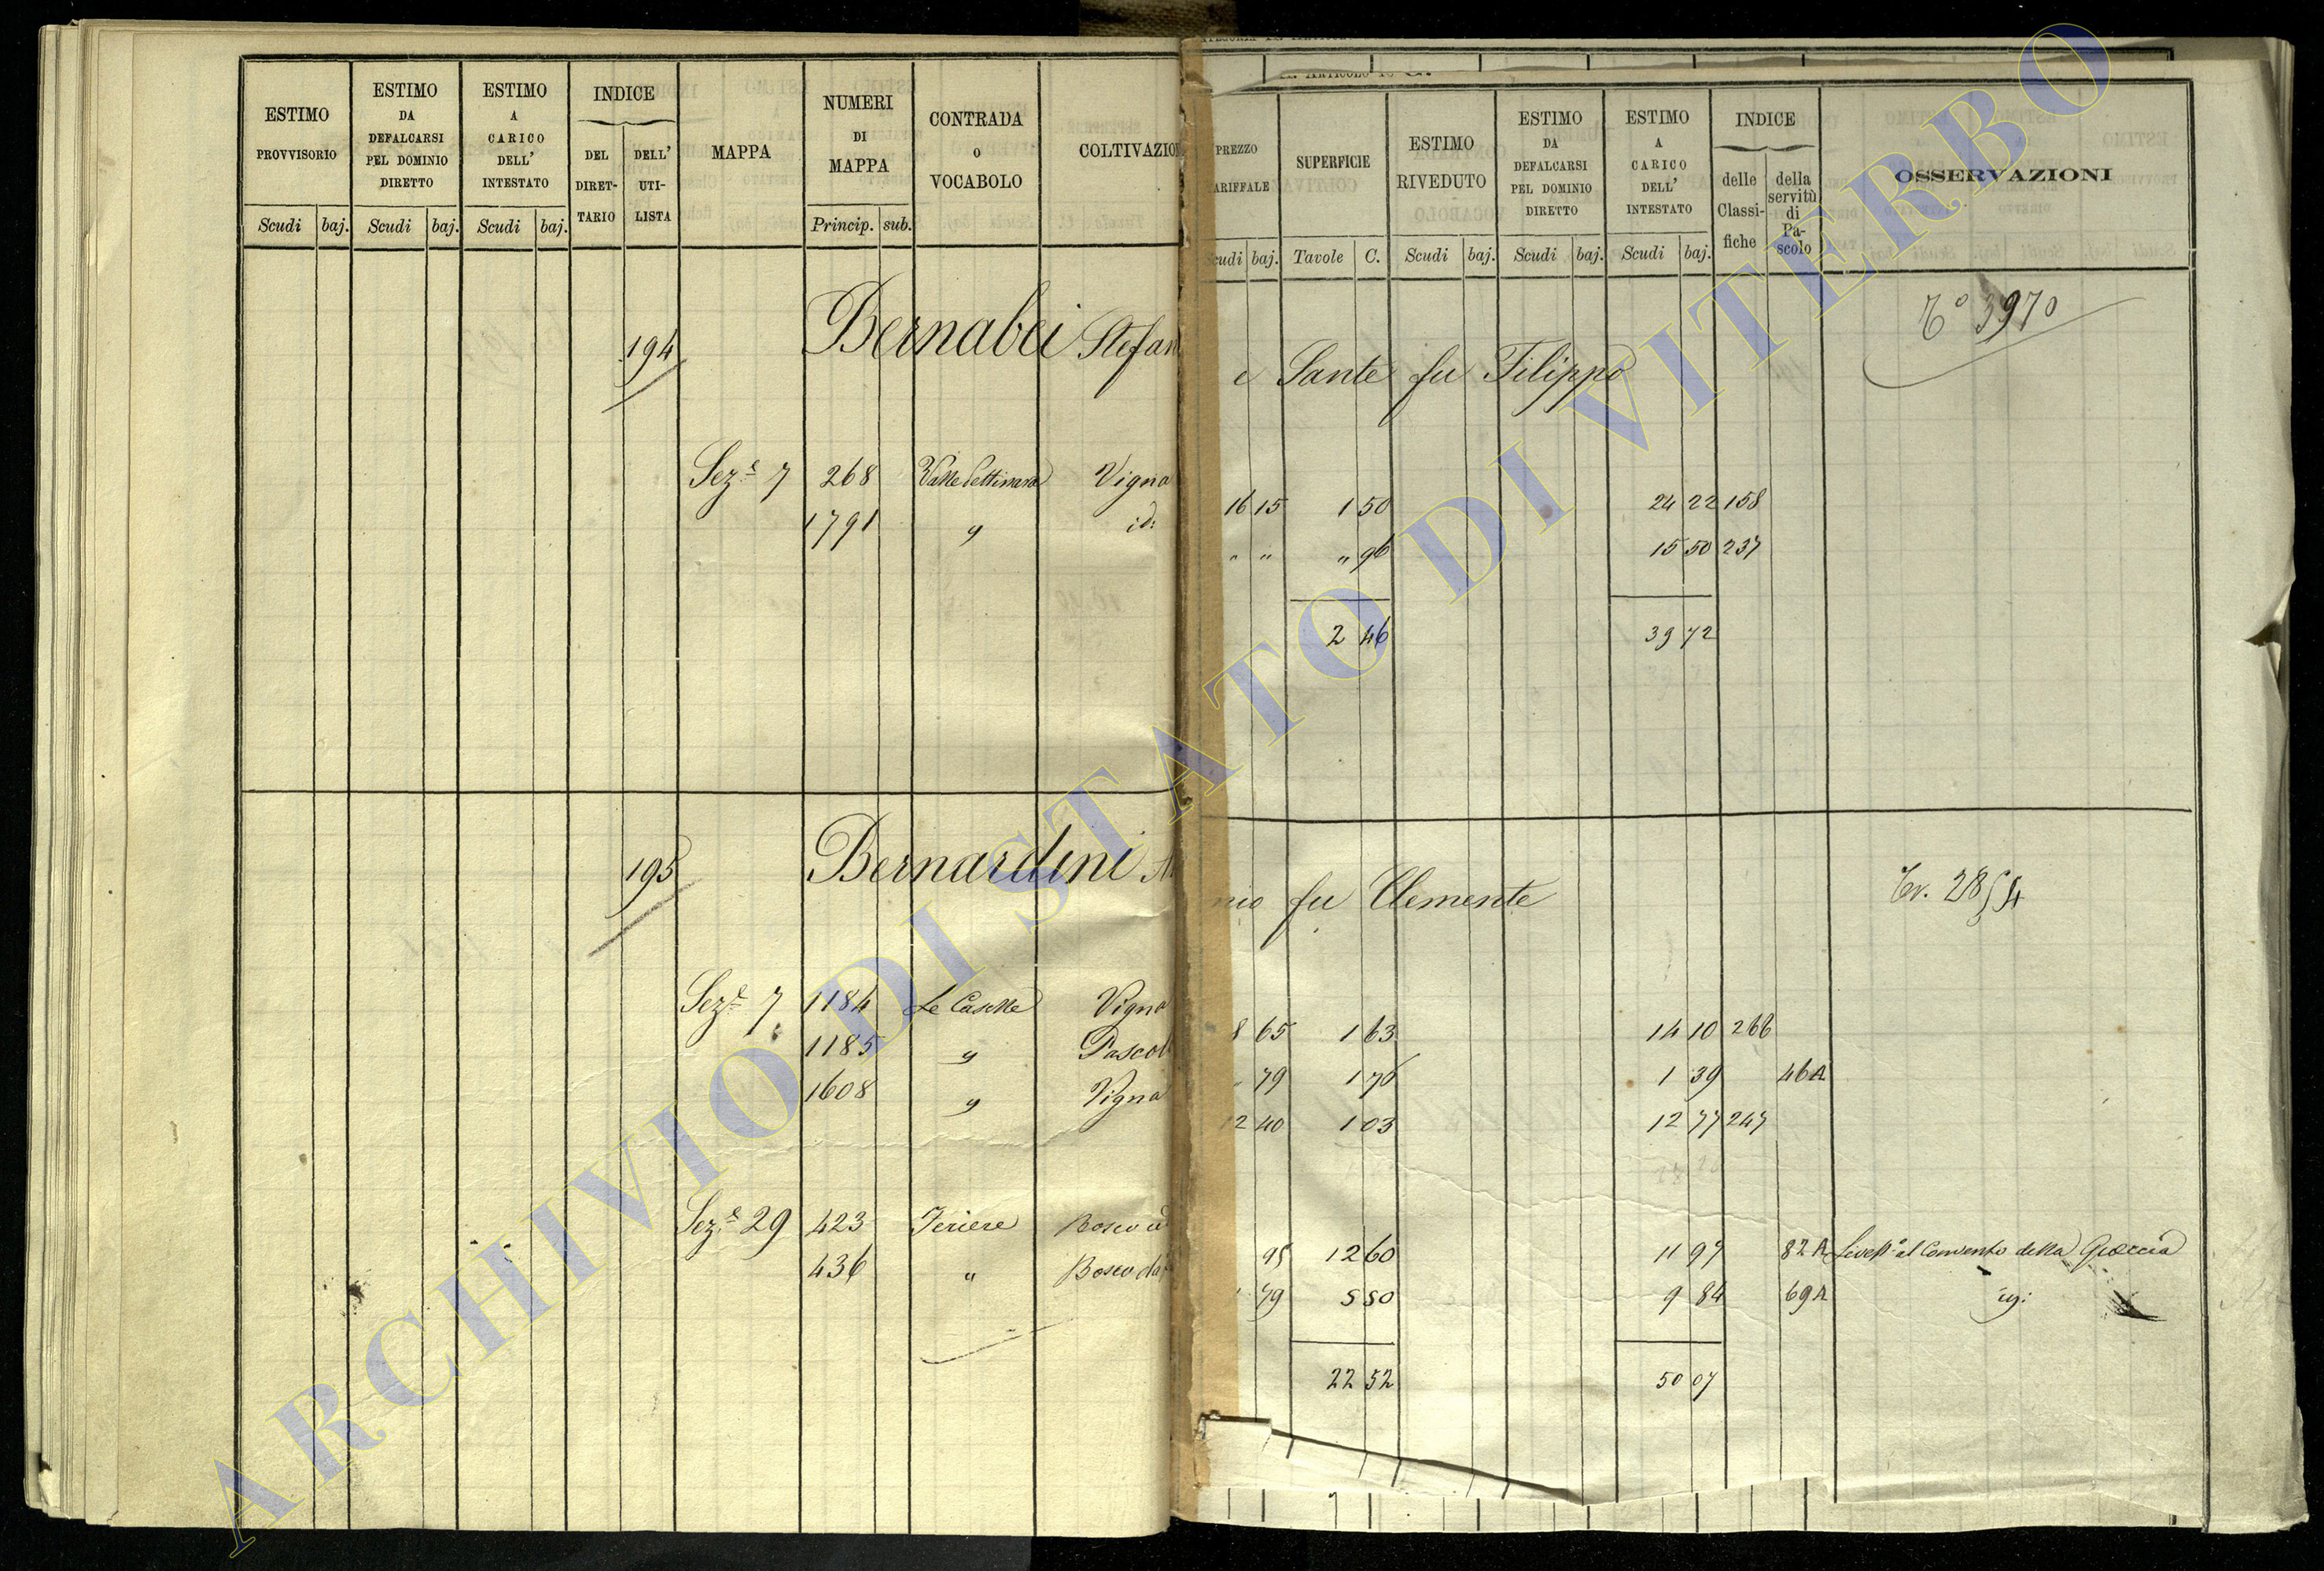 ESTIMO PROVVISORIO
ESTIMO DA DEFALCARSI PEL DOMINIO DIRETTO
ESTIMO A CARICO DELL' INTESTATO
INDICE
DEL DIRET-TARIO
DELL' UTI-LISTA
MAPPA
NUMERI DI MAPPA
CONTRADA O VOCABOLO
COLTIVAZION
Scudi baj. Scudi baj. Scudi baj. Princip. sub.
PREZZO ARIFFALE
SUPERFICIE
ESTIMO RIVEDUTO
ESTIMO DA DEFALCARSI PEL DOMINIO DIRETTO
ESTIMO A CARICO DELL' INTESTATO
INDICE
delle Classi-fiche
della servitù di Pa-scolo
OSSERVAZIONI
cudi baj. Tavole C. Scudi baj. Scudi baj. Scudi baj.
194 Bernabei Stefan e Sante fu Filippo
3970
Sez.e 7 268 Vigna 16 15 1 50 24 22 158
1791 " id: " " " 96 15 50 237
2 46 39 72
195 Bernardini nio fu Clemente
2854
Sez.e 7 1184 Le Caselle Vigna 8 65 1 63 14 10 266
1185 " Pascol " 79 1 76 1 39 46A
1608 " Vigna 12 40 1 03 12 77 247
Sez.e 29 423 Feriere Bosco 95 12 60 11 97 82A al Convento della Quercia
436 " Bosco 79 5 50 9 84 69A
22 52 50 07
ARCHIVIO DI STATO DI VITERBO